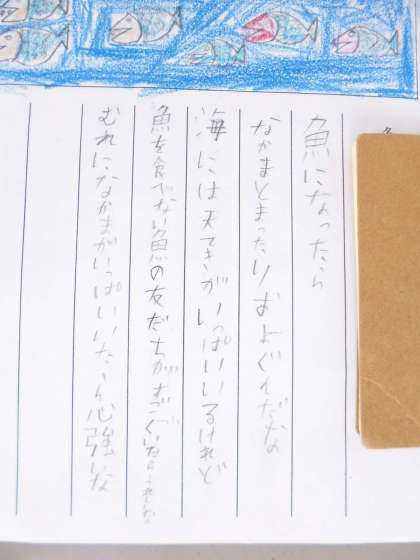 魚になったら
なかまとまったりおよぐんだな
海には天てきがいっぱいいるけれど
魚を食べない魚の友だちがすごくいたらうれしいな
むれになかまがいっぱいいたら心強いな